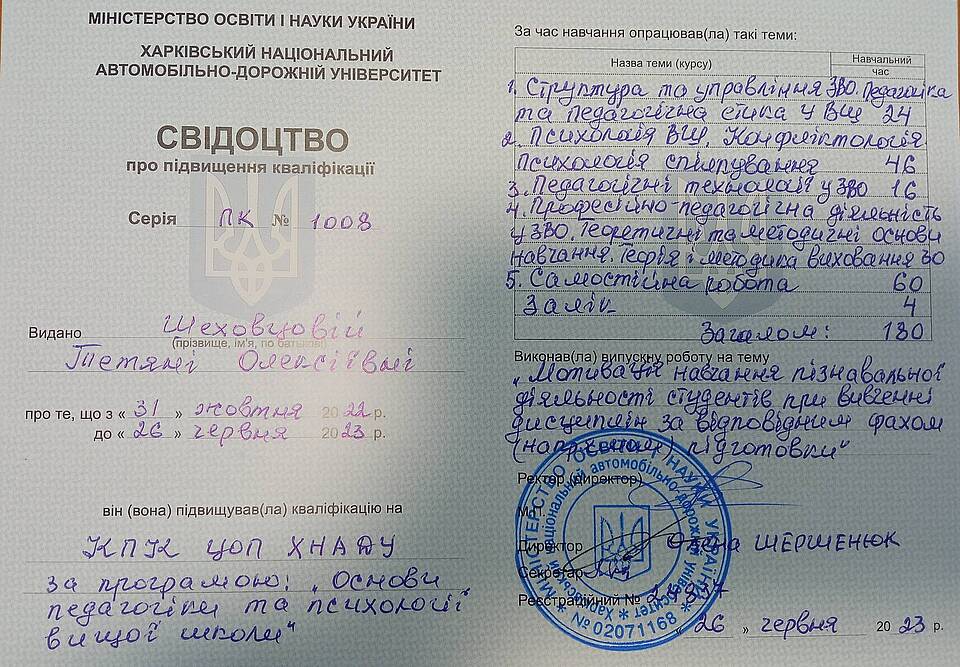 МІНІСТЕРСТВО ОСВІТИ І НАУКИ УКРАЇНИ
ХАРКІВСЬКИЙ НАЦІОНАЛЬНИЙ
АВТОМОБІЛЬНО-ДОРОЖНІЙ УНІВЕРСИТЕТ
СВІДОЦТВО
про підвищення кваліфікації
Серія ПК № 1008
Видано Шеховцовій
(прізвище, ім'я, по батькові)
Тетяні Олексіївні
про те, що з « 31 » жовтня 2022 р.
до « 26 » червня 2023 р.
він (вона) підвищував(ла) кваліфікацію на
КПК ЦОП ХНАДУ
за програмою: „Основи
педагогіки та психології
вищої школи“
За час навчання опрацював(ла) такі теми:
Назва теми (курсу) Навчальний
час
1. Структура та управління ЗВО. Педагогіка
та педагогічна етика у ВШ 24
2. Психологія ВШ. Конфліктологія
Психологія спілкування 46
3. Педагогічні технології у ЗВО 16
4. Професійно-педагогічна діяльність
у ЗВО. Теоретичні та методичні основи
навчання. Теорія і методика виховання 30
5. Самостійна робота 60
Залік 4
Загалом: 180
Виконав(ла) випускну роботу на тему
„Мотивація навчання пізнавальної
діяльності студентів при вивченні
дисциплін за відповідним фахом
(напрямом) підготовки“
Ректор (директор)
М.П.
Директор Олена ШЕРШЕНЮК
Секретар
Реєстраційний №
« 26 » червня 2023 р.
МІНІСТЕРСТВО ОСВІТИ І НАУКИ УКРАЇНИ
Харківський національний автомобільно-дорожній університет
№ 02071168